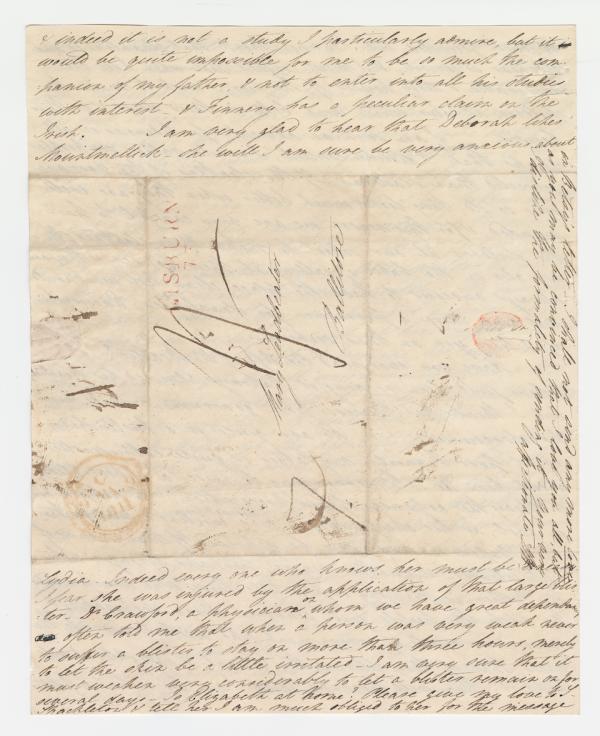 & indeed it is not a study I particularly admire, but it
would be quite impossible for me to be so much the com
panion of my father, & not to enter into all his studies
with interest - & Finnery has a peculiar claim on the
Irish. I am very glad to hear that Deborah likes
Mountmellick - she will I am sure be very anxious about
LISBURN
77
Mary Leadbeater
Ballitore
Lydia. Indeed every one who knows her must be
I fear she was injured by the application of that large blis
ter. Dr Crawford, a physician on whom we have great dependance,
often told me that when a person was very weak never
to suffer a blister to stay on more than three hours, merely
to let the skin be a little irritated - I am very sure that it
must weaken very considerably to let a blister remain on for
several days. - Is Elizabeth at home? Please give my love to S.
Shackleton & tell her I am much obliged to her for the message
letter. I shall not send any more love
as you may be convinced that I love you all, but
dislike the formality of sending it. Your very
affectionate